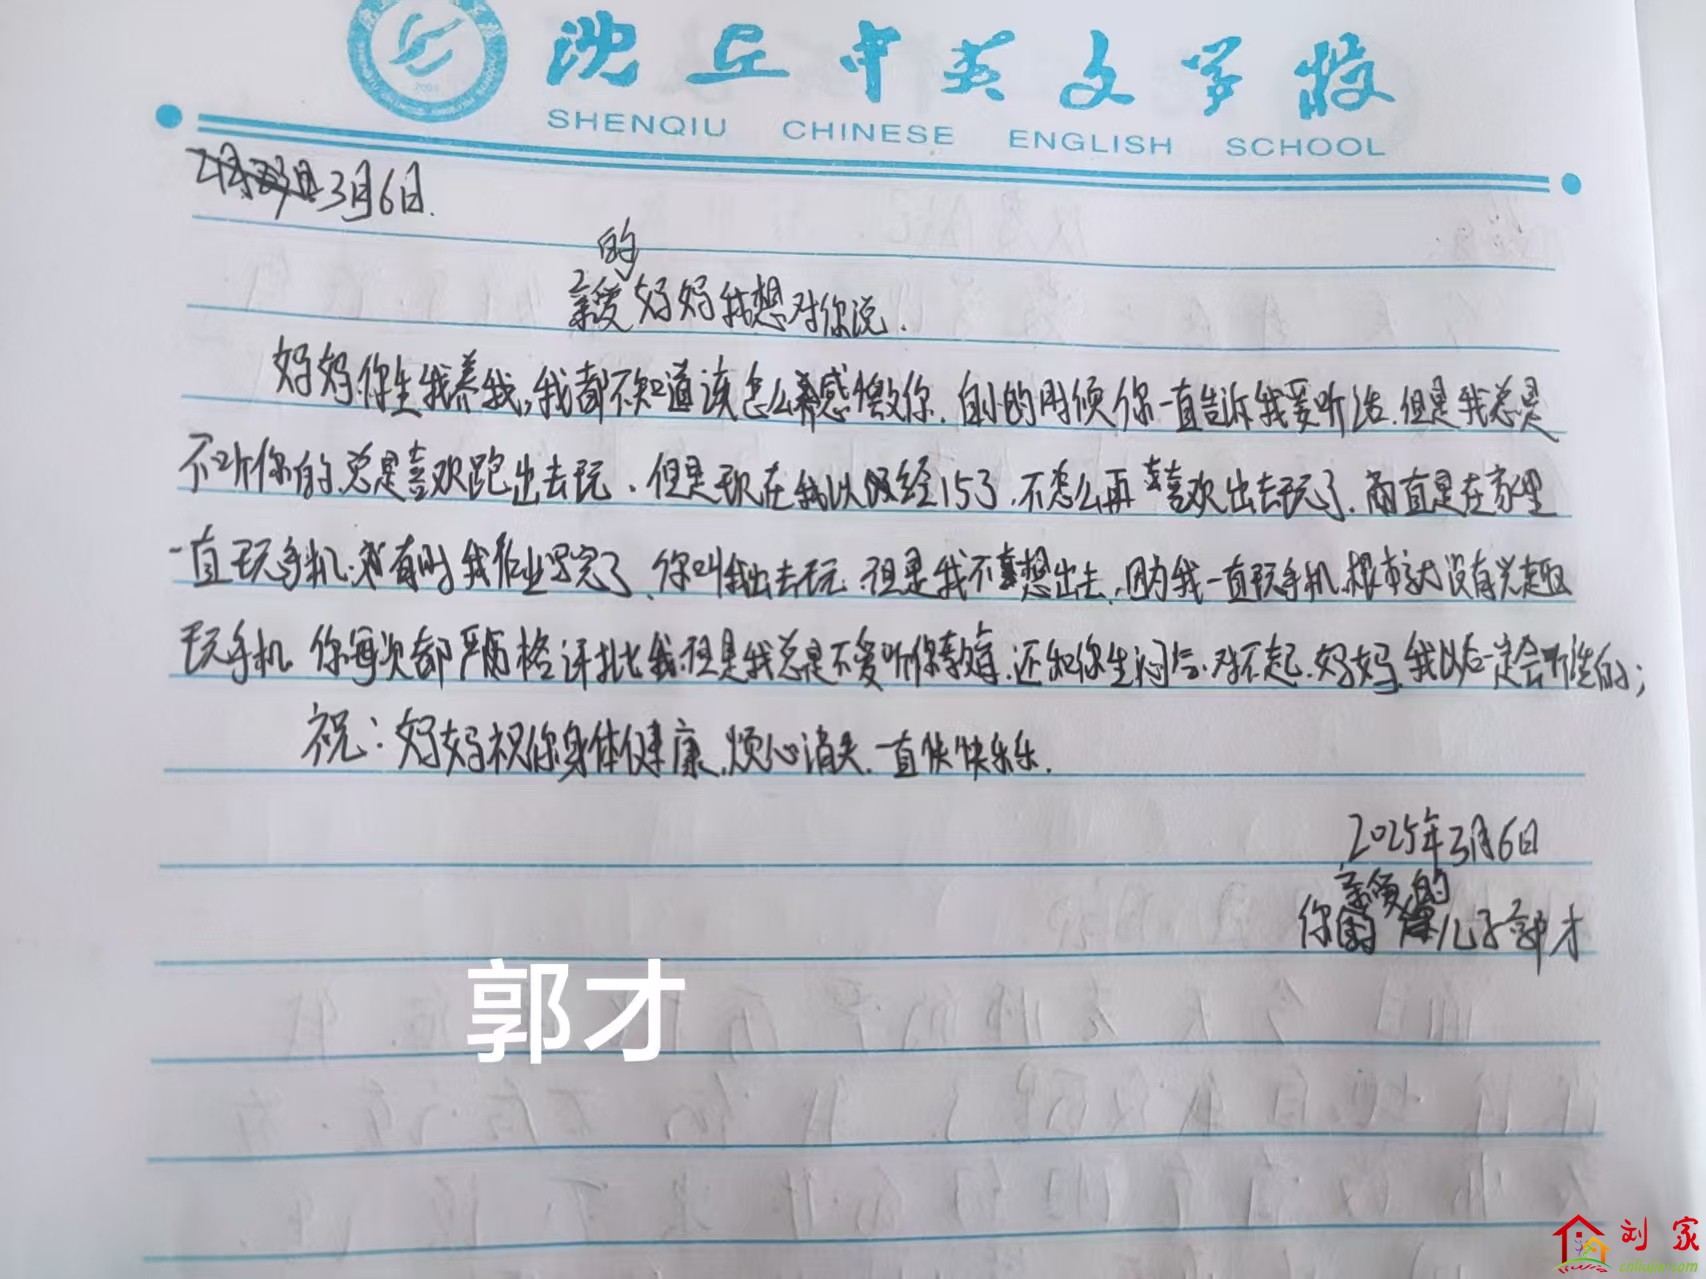 沈丘中英文学校
SHENQIU CHINESE ENGLISH SCHOOL
3月6日.
亲爱的妈妈我想对你说.
妈妈你生我养我,我都不知道该怎么感激你.自小的时候你一直告诉我要听话.但是我总是
不听你的.总是喜欢跑出去玩.但是现在我以经15了.不怎么再喜欢出去玩了.而直是在家里
一直玩手机.有时我作业写完了、你叫我出去玩.但是我不想出去.因为我一直玩手机.根本就没有兴趣
玩手机.你每次都严厉格评批我.但是我总是不爱听你教悔.还和你生闷气.对不起.妈妈.我以后一定会听话的;
祝:妈妈祝你身体健康.烦心消失.一直快快乐乐.
2025年3月6日
你亲爱的儿子郭才
郭才
刘家
cnliujia.com